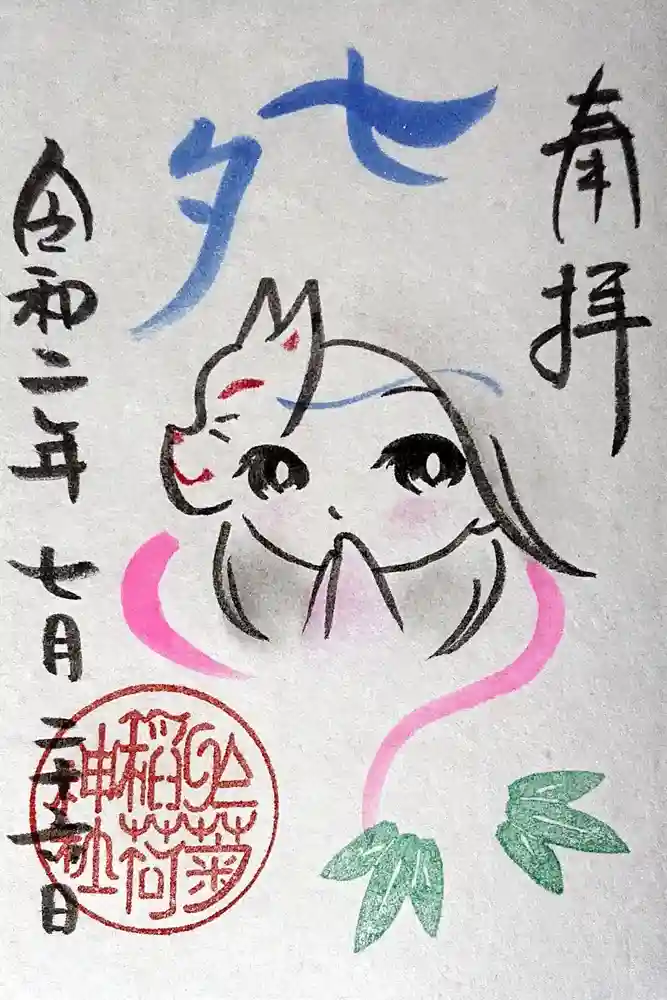 奉拝
七夕
令和二年七月二十六日
於菊
稲荷
神社